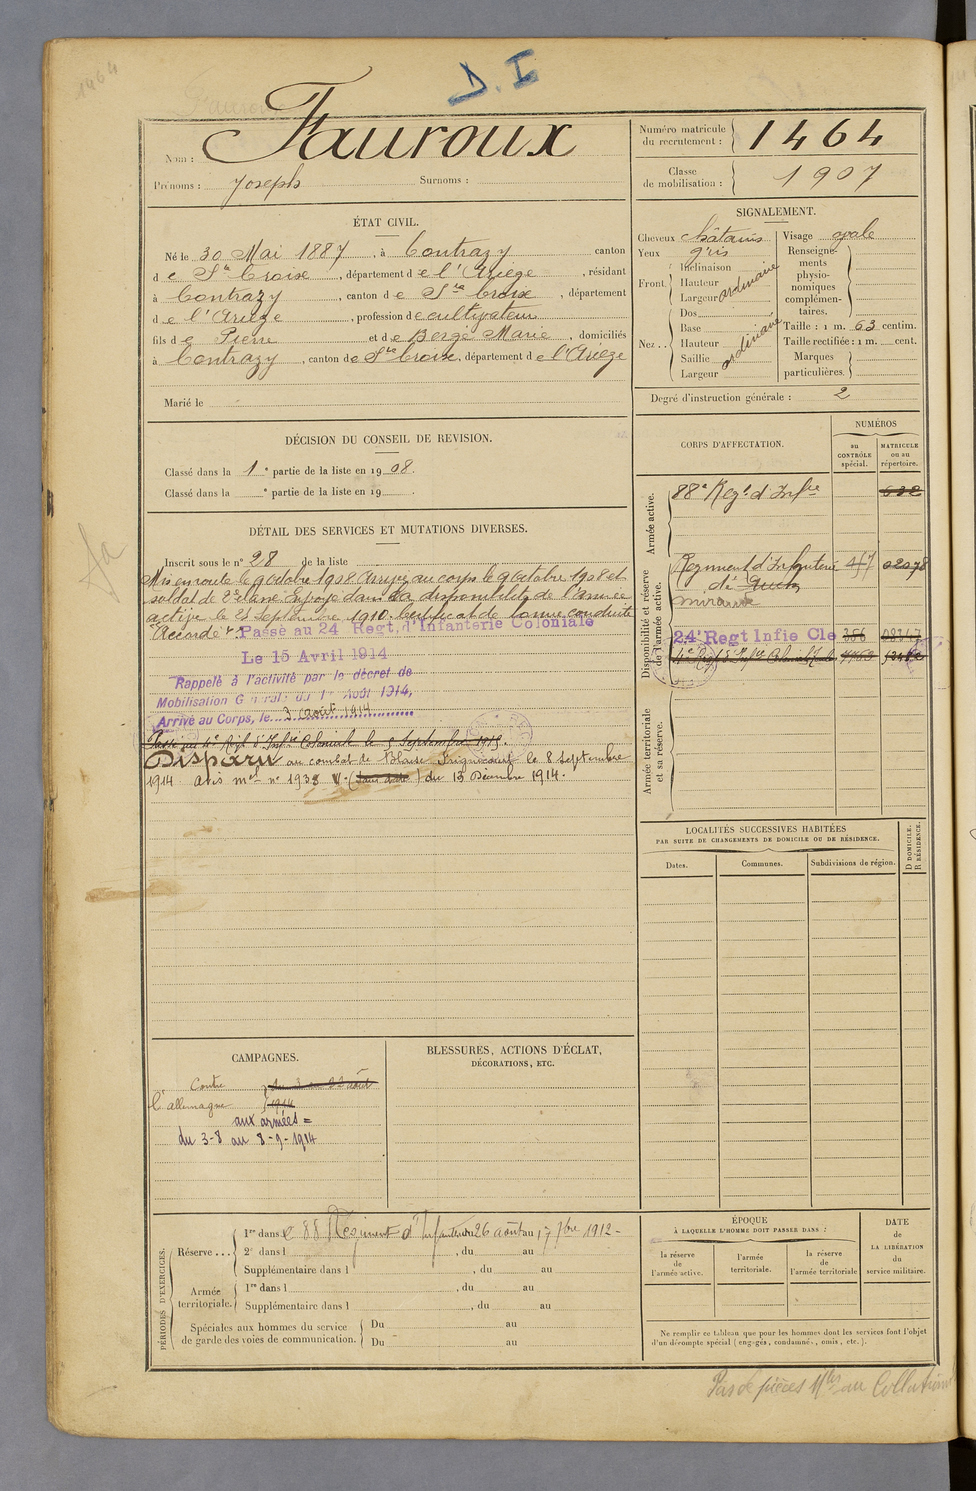 1464
D. I
Nom : Fauroux
Prénoms : Joseph Surnoms :
Numéro matricule
du recrutement : 1464
Classe
de mobilisation : 1907
ÉTAT CIVIL.
Né le 30 Mai 1887, à Contrazy canton
de Ste Croix, département de l'Ariège, résidant
à Contrazy, canton de Ste Croix, département
de l'Ariège, profession de cultivateur
fils de Pierre et de Bergé Marie, domiciliés
à Contrazy, canton de Ste Croix, département de l'Ariège
Marié le
SIGNALEMENT.
Cheveux châtains
Yeux gris
Front. Inclinaison
Hauteur
Largeur ordinaire
Nez. Dos
Base
Hauteur
Saillie
Largeur ordinaire
Visage ovale
Renseigne-
ments
physio-
nomiques
complémen-
taires.
Taille : 1 m. 63 centim.
Taille rectifiée : 1 m. cent.
Marques
particulières.
Degré d'instruction générale : 2
DÉCISION DU CONSEIL DE REVISION.
Classé dans la 1e partie de la liste en 1908.
Classé dans la e partie de la liste en 19 .
DÉTAIL DES SERVICES ET MUTATIONS DIVERSES.
Inscrit sous le n° 28 de la liste
Mis en route le 9 octobre 1908 Arrivé au corps le 9 Octobre 1908 et
soldat de 2e classe Envoyé dans la disponibilité de l'armée
active le 25 Septembre 1910. Certificat de bonne conduite
"Accordé".
Passé au 24 Regt. d'Infanterie Coloniale
Le 15 Avril 1914
Rappelé à l'activité par le décret de
Mobilisation Générale du 1er Août 1914,
Arrivé au Corps, le 3 août 1914
Passé au 4e Régt d'Infrie Coloniale le 5 Septembre 1915.
Disparu au combat de Blaise Frignicourt le 8 septembre
1914 avis mel n° 1938 V. (sans date) du 13 Décembre 1914.
CORPS D'AFFECTATION.
NUMÉROS
au
CONTRÔLE
spécial.
MATRICULE
ou au
répertoire.
Armée active.
88e Regt d'Infie 632
Disponibilité et réserve
de l'armée active.
Regiment d'Infanterie 457 02078
de Auch
Mirande
24e Regt Infie Cle 356 08147
4e Regt d'Infie Coloniale
Armée territoriale
et sa réserve.
LOCALITÉS SUCCESSIVES HABITÉES
PAR SUITE DE CHANGEMENTS DE DOMICILE OU DE RÉSIDENCE.
Dates. Communes. Subdivisions de région.
D DOMICILE.
R RÉSIDENCE.
CAMPAGNES.
Contre du 3 au 22 août
l'allemagne 1914
aux armées =
du 3-8 au 8-9-1914
BLESSURES, ACTIONS D'ÉCLAT,
DÉCORATIONS, ETC.
PÉRIODES D'EXERCICES.
Réserve ... 1re dans le 88 Régiment d'Infanterie du 26 août au 17 7bre 1912 -
2e dans l , du au
Supplémentaire dans l , du au
Armée
territoriale. 1re dans l , du au
Supplémentaire dans l , du au
Spéciales aux hommes du service
de garde des voies de communication. Du au
Du au
ÉPOQUE
À LAQUELLE L'HOMME DOIT PASSER DANS :
la réserve
de
l'armée active.
l'armée
territoriale.
la réserve
de
l'armée territoriale
DATE
de
LA LIBÉRATION
du
service militaire.
Ne remplir ce tableau que pour les hommes dont les services font l'objet
d'un décompte spécial (engagés, condamnés, omis, etc.).
Pas de pièces Mles au Collationnt